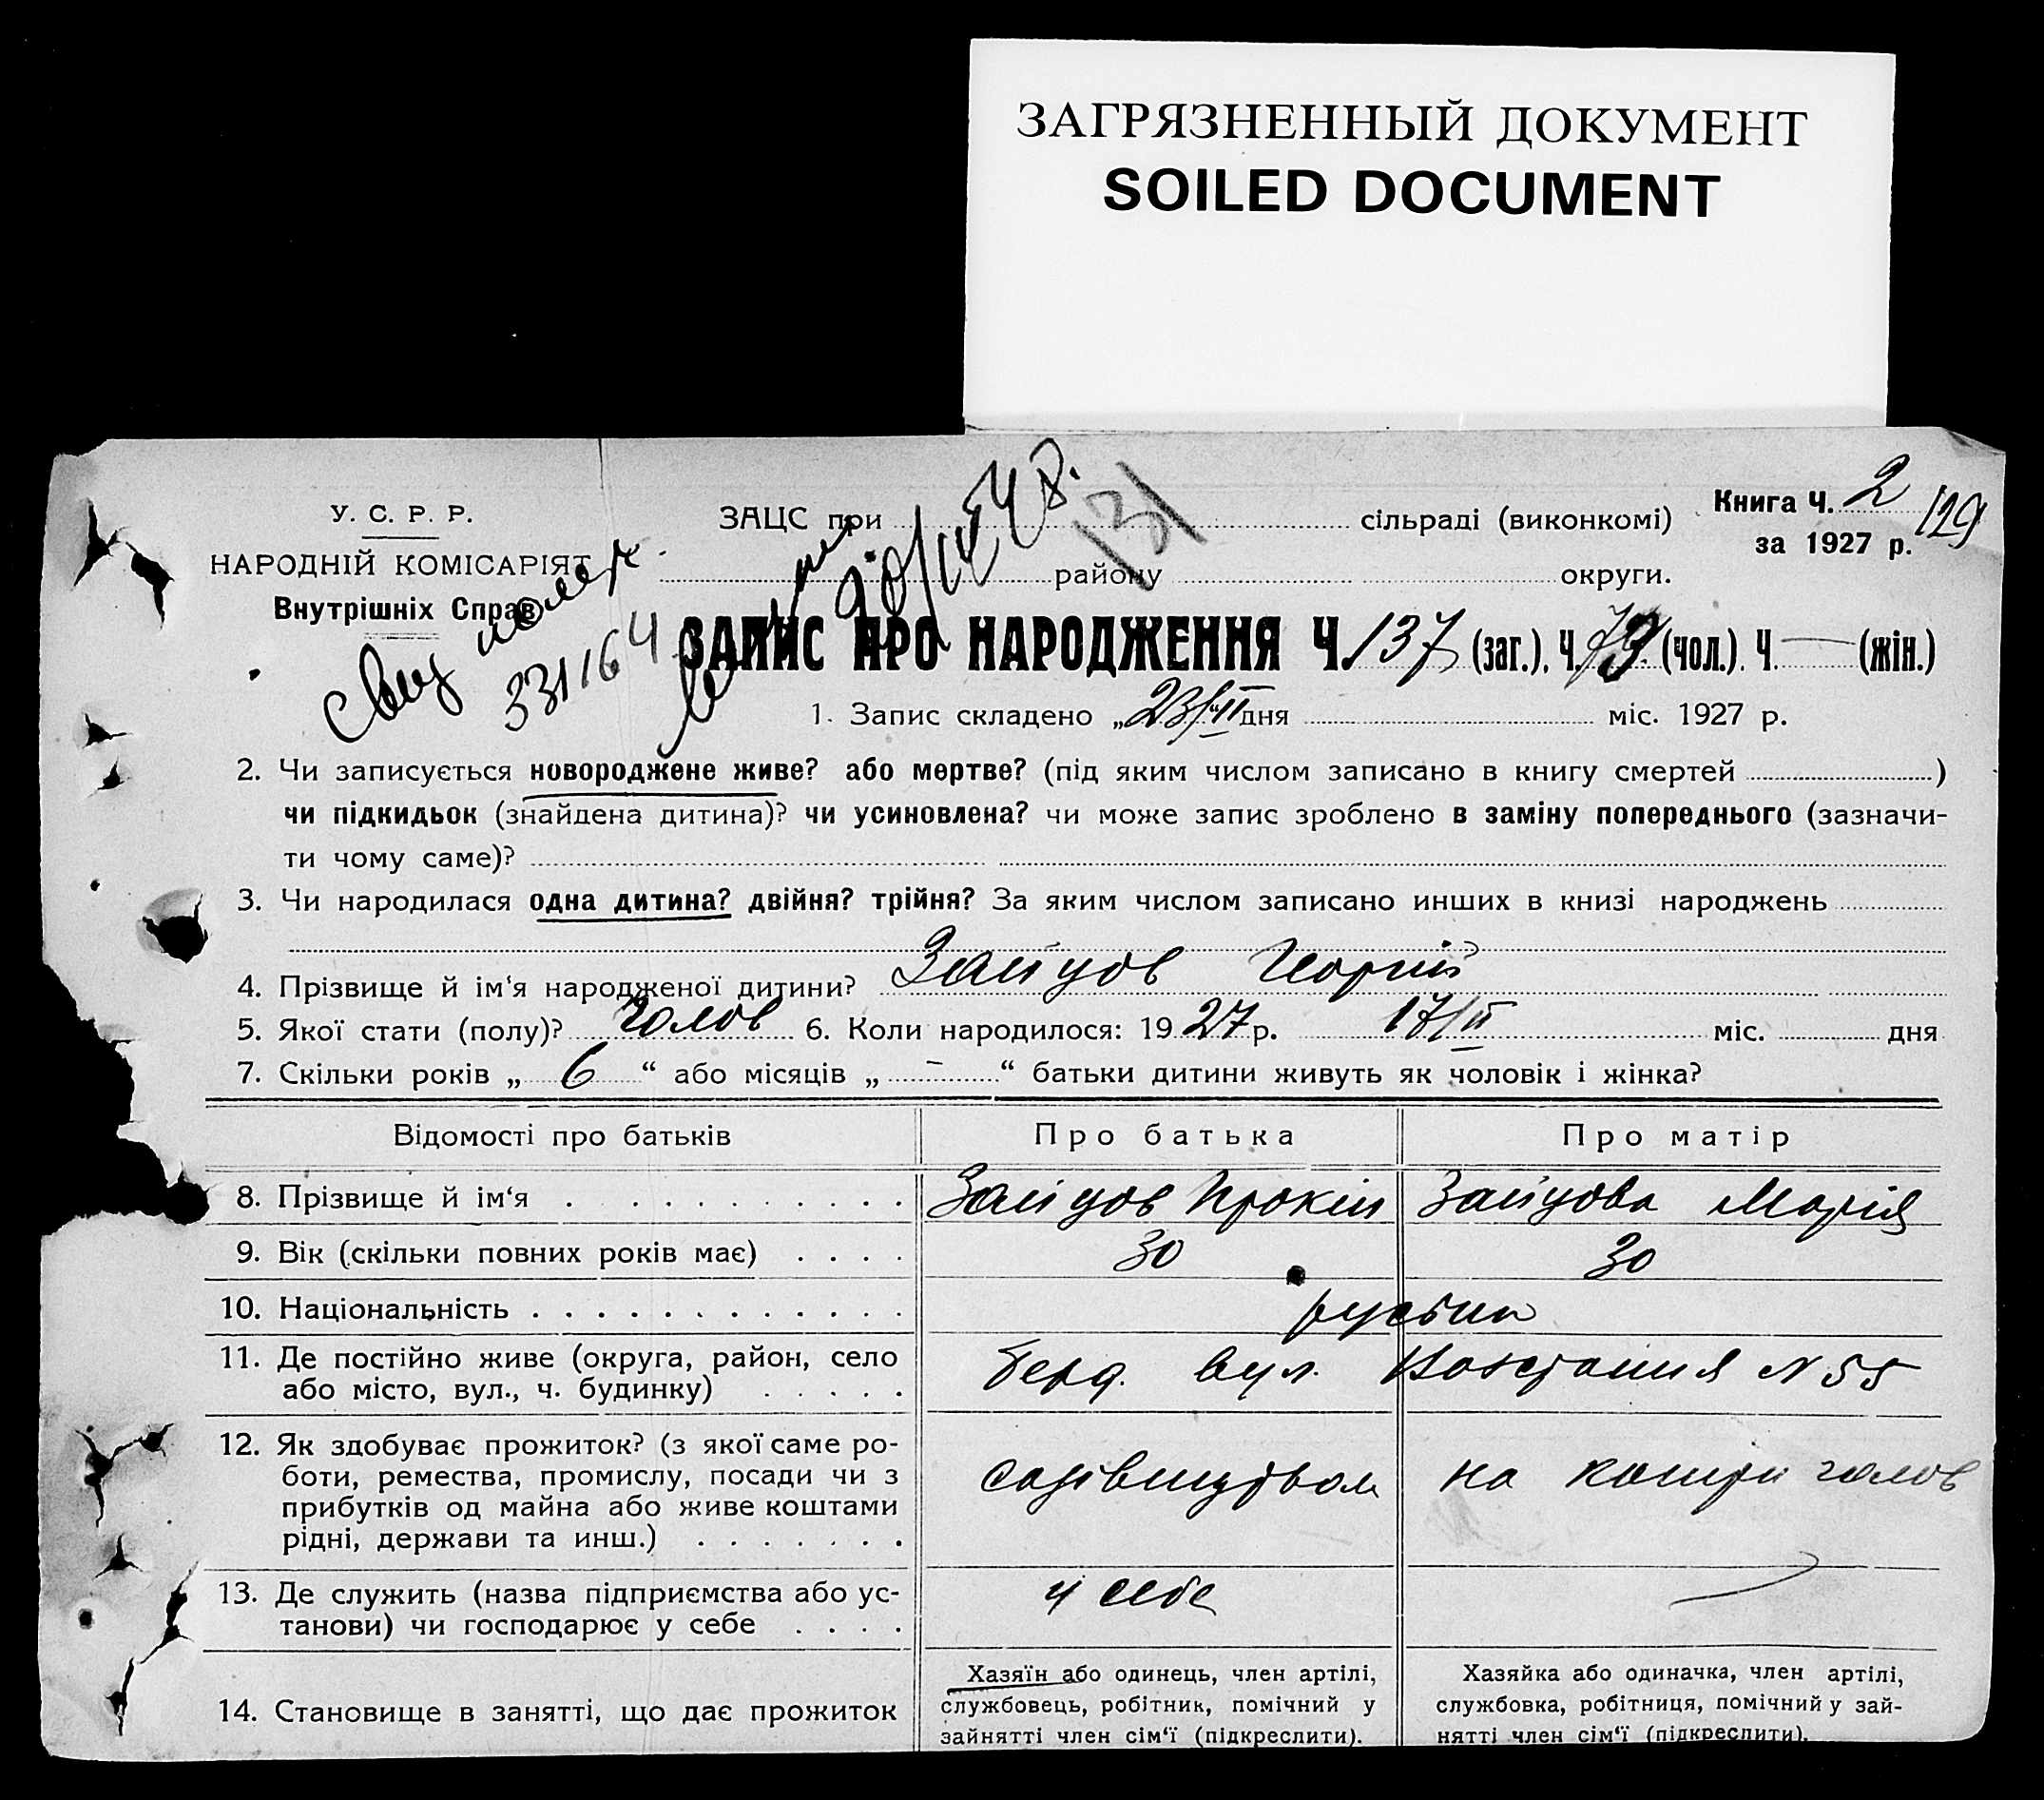 ЗАГРЯЗНЕННЫЙ ДОКУМЕНТ
SOILED DOCUMENT
У. С. Р. Р.
НАРОДНІЙ КОМІСАРІЯТ
Внутрішніх Справ
ЗАЦС при сільраді (виконкомі)
району округи.
Книга Ч. 2
за 1927 р.
129
131
331164
ЗАПИС ПРО НАРОДЖЕННЯ Ч. 137 (заг.), Ч. 79 (чол.). Ч. — (жін.)
1. Запис складено „23/II“ дня міс. 1927 р.
2. Чи записується новороджене живе? або мертве? (під яким числом записано в книгу смертей )
чи підкидьок (знайдена дитина)? чи усиновлена? чи може запис зроблено в заміну попереднього (зазначи-
ти чому саме)?
3. Чи народилася одна дитина? двійня? трійня? За яким числом записано инших в книзі народжень
4. Прізвище й ім‘я народженої дитини? Зайцов Георгій
5. Якої стати (полу)? чолов 6. Коли народилося: 1927 р. 17/II міс. дня
7. Скільки років „ 6 “ або місяців „ – “ батьки дитини живуть як чоловік і жінка?
Відомості про батьків Про батька Про матір
8. Прізвище й ім‘я Зайцов Прокіп Зайцова Марія
9. Вік (скільки повних років має) 30 30
10. Національність
11. Де постійно живе (округа, район, село
або місто, вул., ч. будинку)
Берд. вул. N 55
12. Як здобуває прожиток? (з якої саме ро-
боти, ремества, промислу, посади чи з
прибутків од майна або живе коштами
рідні, держави та инш.)
садівництвом на кошти чолов
13. Де служить (назва підприємства або ус-
танови) чи господарює у себе
у себе —
14. Становище в занятті, що дає прожиток
Хазяїн або одинець, член артілі,
службовець, робітник, помічний у
зайнятті член сім‘ї (підкреслити).
Хазяйка або одиначка, член артілі,
службовка, робітниця, помічний у зай-
нятті член сім‘ї (підкреслити).